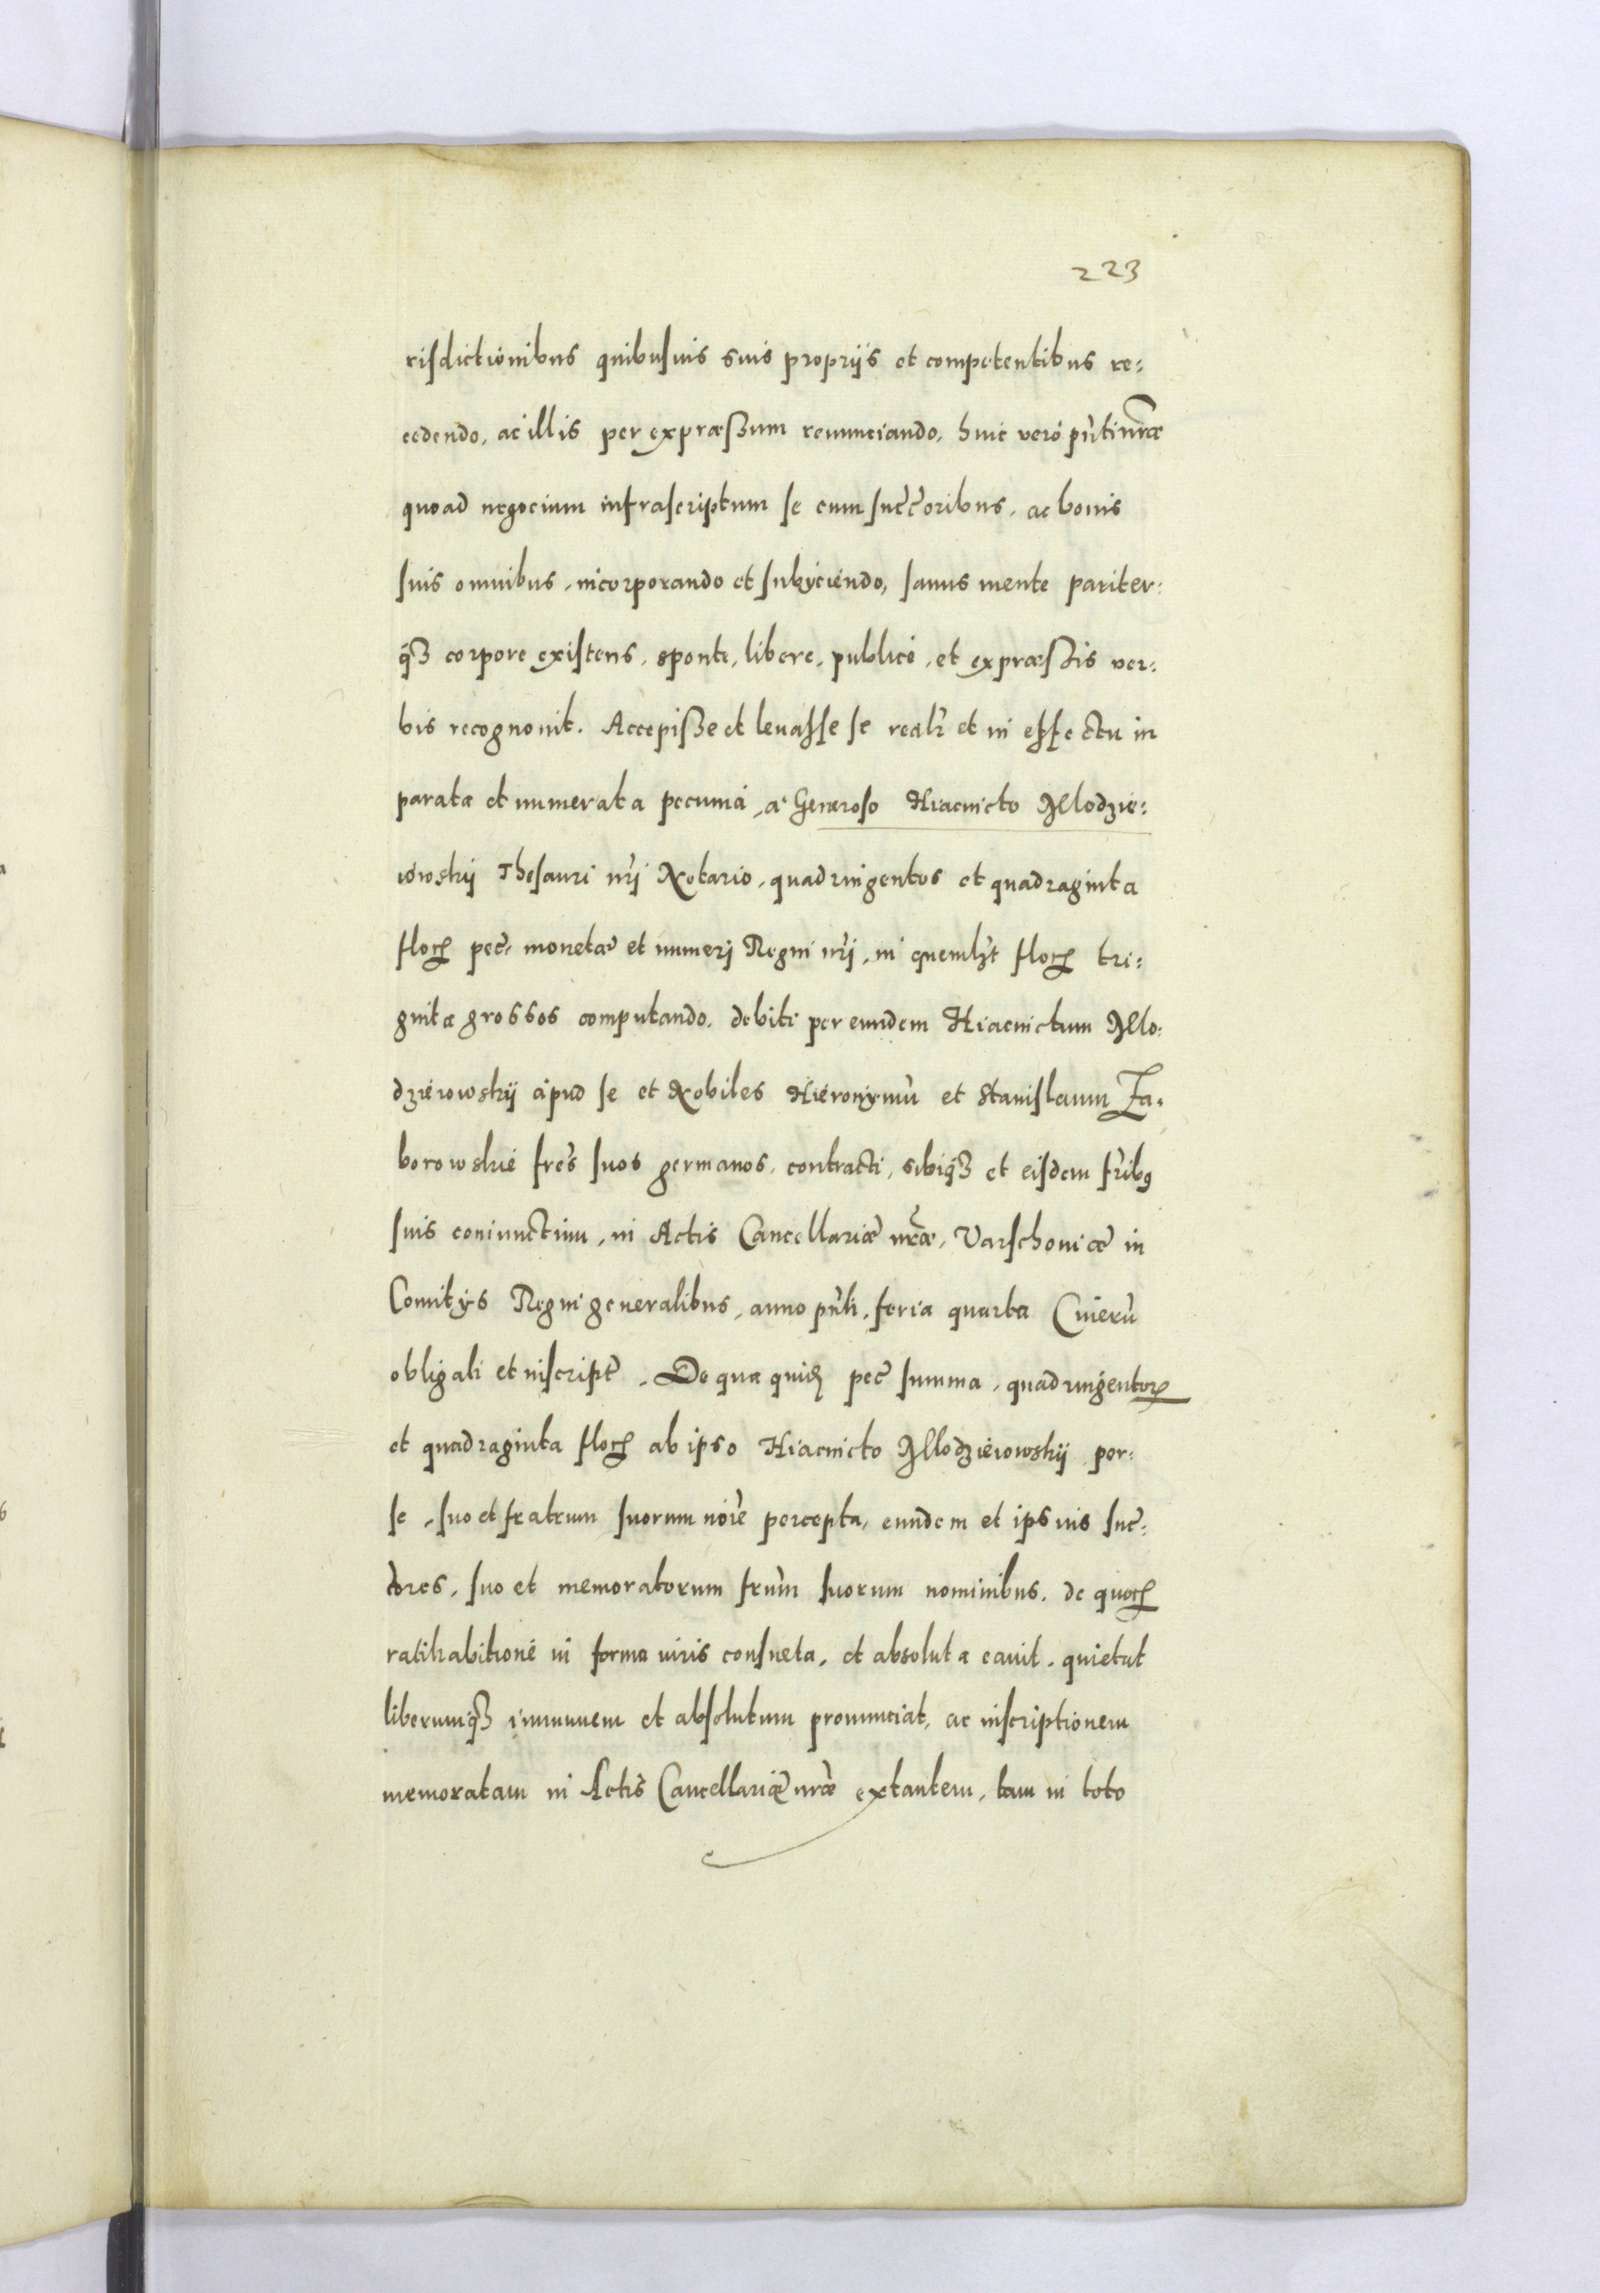 223
risdictionibus quibusuis suis propriis et competentibus re:
cedendo, ac illis per expræssum renunciando, huic verò pñti nr̃æ
quoad negocium infrascriptum se cum succ̃oribus, ac bonis
suis omnibus, incorporando et subyciendo, sanus mente pariter:
q̃3 corpore existens, sponte, libere, publicè, et expræssis ver:
bis recognouit. Accepisse et leuasse se realr̃ et in effectu in
parata et numerata pecunia, à Generoso Hiacincto Mlodzie:
iowskij Thesauri nr̃i Notario, quadringentos et quadraginta
floꝝ pec̃ monetæ et numeri Regni nr̃i, in quemlꝫt floꝝ tri:
ginta grossos computando, debiti per eundem Hiacinctum Mlo:
dzieiowskij apud se et Nobiles Hieronymũ et Stanislaum Za:
borowskie frẽs suos germanos, contracti, sibiq̃3 et eisdem fr̃ibꝰ
suis coniunctim, in Actis Cancellariæ nr̃æ, Varschouiæ in
Comitys Regni generalibus, anno pñti, feria quarta Cinerũ
obligati et inscripti. De qua quidẽ pec̃ summa, quadringentoꝝ
et quadraginta floꝝ ab ipso Hiacincto Mlodzieiowskij per:
se, suo et fratrum suorum noĩe percepta, eundem et ipsius succ̃:
ores, suo et memoratorum fr̃um suorum nominibus, de quoꝝ
ratihabitione in forma iuris consueta, et absoluta cauit, quietat
liberumq̃3 immunem et absolutum pronunciat, ac inscriptionem
memoratam in Actis Cancellariæ nr̃æ extantem, tam in toto